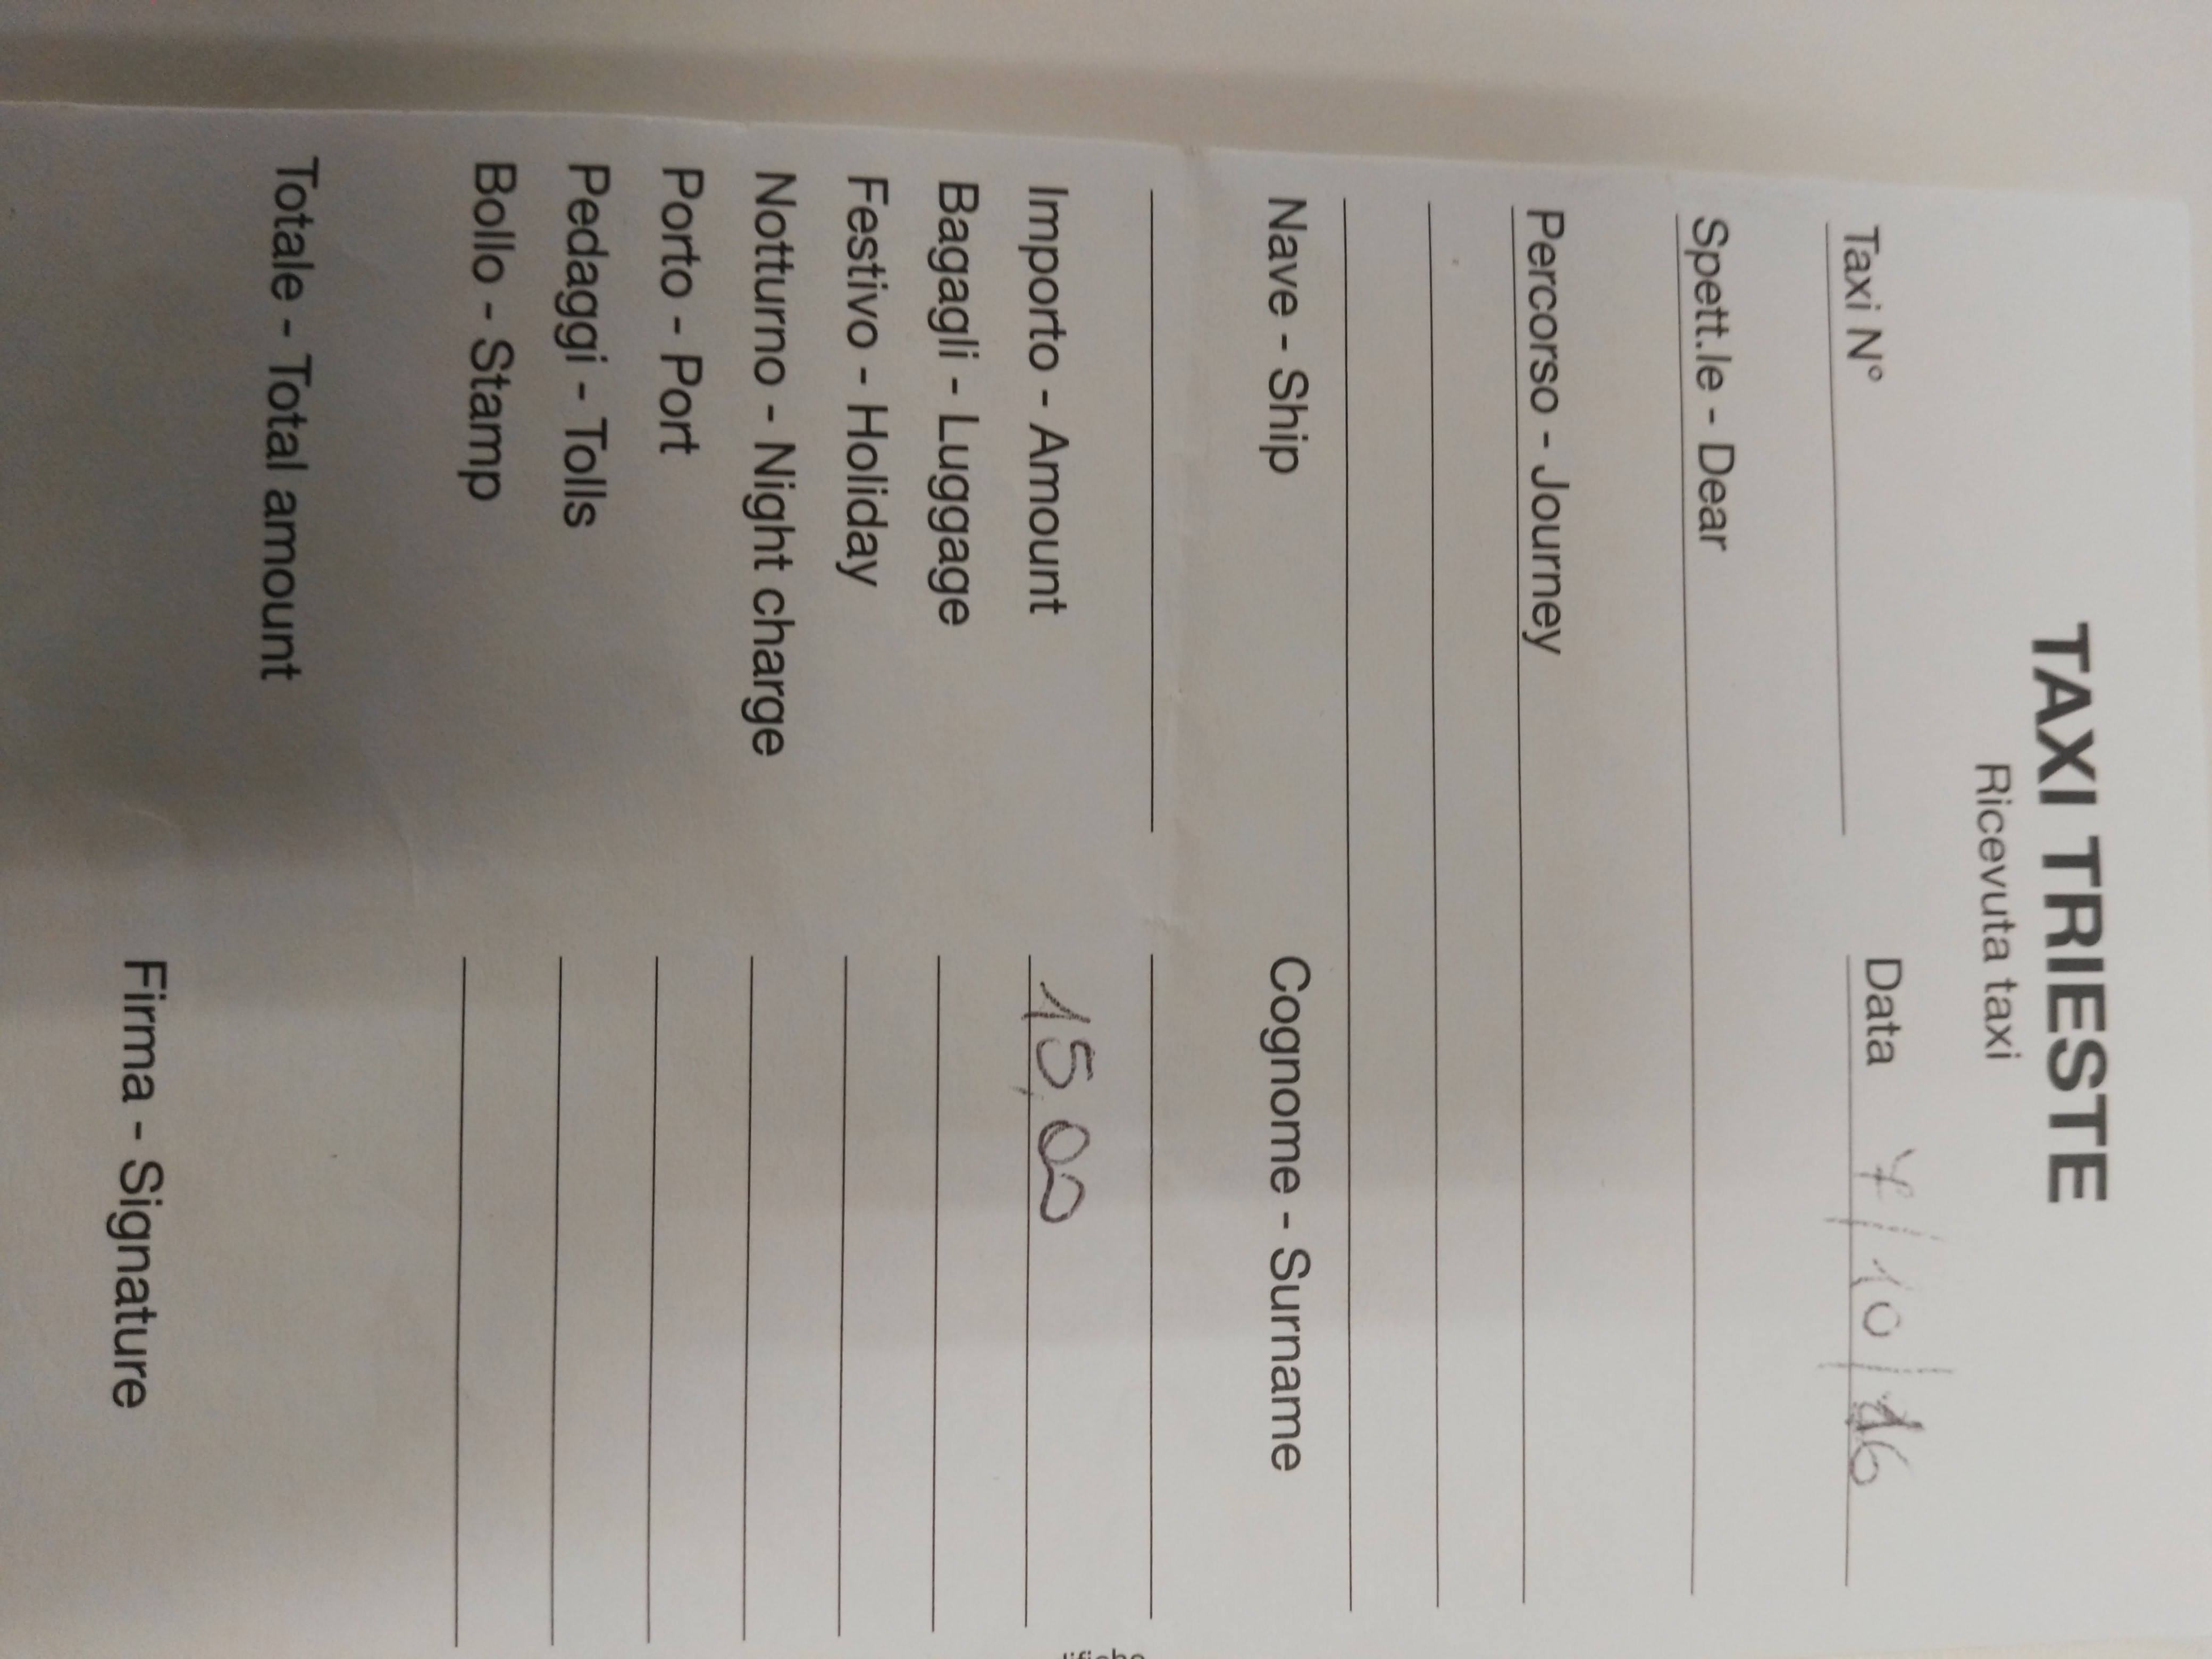 TAXI TRIESTE
Ricevuta taxi
Taxi N° Data 7/10/16
Spett.le - Dear
Percorso - Journey
Nave - Ship Cognome - Surname
Importo - Amount 15,00
Bagagli - Luggage
Festivo - Holiday
Notturno - Night charge
Porto - Port
Pedaggi - Tolls
Bollo - Stamp
Totale - Total amount
Firma - Signature